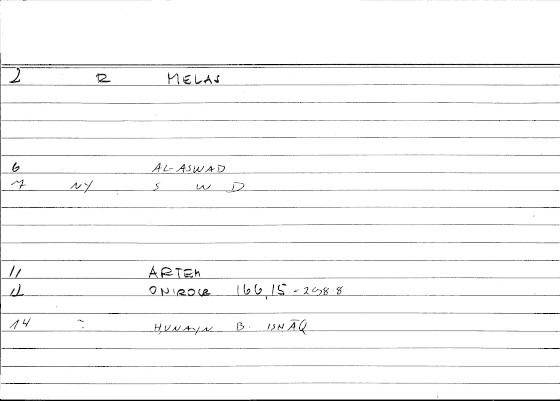 2 R MELAS
6 AL-ASWAD
7 NY S W D
11 ARTEM
12 ONIROCR 166,15-298.8
14 = HUNAYN B. ISḤĀQ